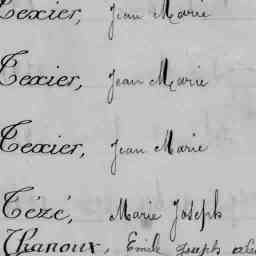 Texier, Jean Marie
Texier, Jean Marie
Texier, Jean Marie
Tézé, Marie Joseph
Thanoux, Emile Joseph